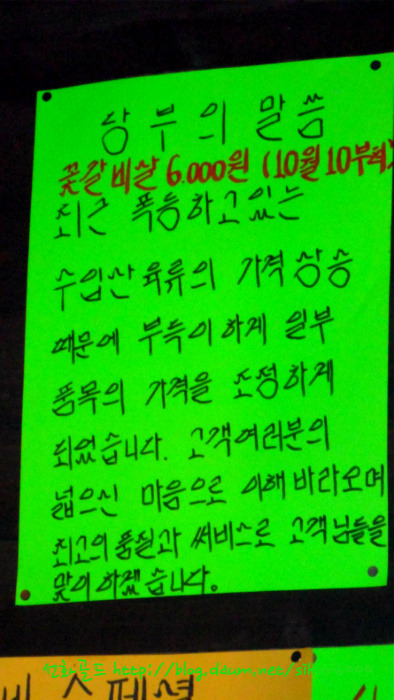 당부의 말씀
꽃갈비살 6.000원 (10월10부터)
최근 폭등하고있는
수입산 육류의 가격상승
때문에 부득이하게 일부
품목의 가격을 조정하게
되었습니다. 고객여러분의
넓으신 마음으로 이해바라오며
최고의 품질과 써비스로 고객님들을
맞이하겠습니다.
선화골드 http://blog.daum.net/si
비스페셜